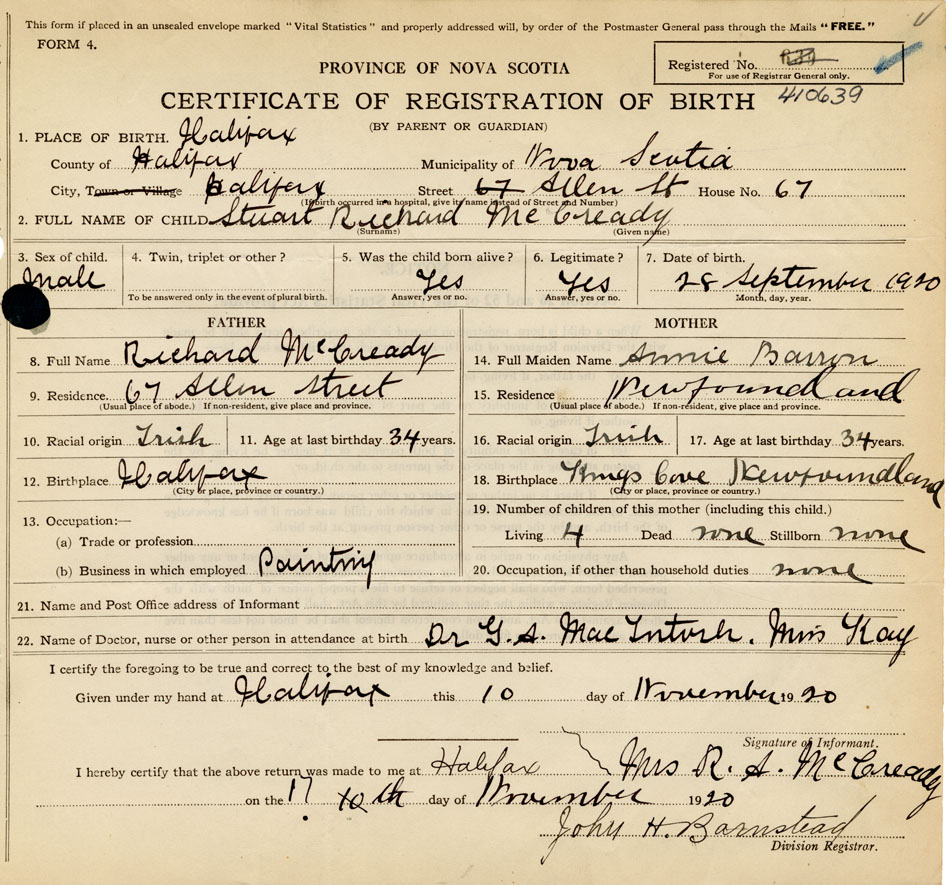 This form if placed in an unsealed envelope marked "Vital Statistics" and properly addressed will, by order of the Postmaster General pass through the Mails "FREE."
FORM 4.
Registered No.
For use of Registrar General only.
410639
PROVINCE OF NOVA SCOTIA
CERTIFICATE OF REGISTRATION OF BIRTH
(BY PARENT OR GUARDIAN)
1. PLACE OF BIRTH. Halifax
County of Halifax Municipality of Nova Scotia
City, Town or Village Halifax Street 67 Allen St House No. 67
(If birth occurred in a hospital, give its name instead of Street and Number)
2. FULL NAME OF CHILD Stuart Richard McCready
(Surname) (Given name)
3. Sex of child. 4. Twin, triplet or other? 5. Was the child born alive? 6. Legitimate? 7. Date of birth.
Male Yes Yes 28 September 1920
To be answered only in the event of plural birth. Answer, yes or no. Answer, yes or no. Month, day, year.
FATHER MOTHER
8. Full Name Richard McCready 14. Full Maiden Name Annie Barron
9. Residence. 67 Allen Street 15. Residence Newfoundland
(Usual place of abode.) If non-resident, give place and province. (Usual place of abode.) If non-resident, give place and province.
10. Racial origin Irish 11. Age at last birthday 34 years. 16. Racial origin Irish 17. Age at last birthday 34 years.
12. Birthplace Halifax 18. Birthplace Kings Cove Newfoundland
(City or place, province or country.) (City or place, province or country.)
13. Occupation:— 19. Number of children of this mother (including this child.)
(a) Trade or profession Living 4 Dead none Stillborn none
(b) Business in which employed Painting 20. Occupation, if other than household duties none
21. Name and Post Office address of Informant
22. Name of Doctor, nurse or other person in attendance at birth Dr G. A. MacIntosh. Miss Kay
I certify the foregoing to be true and correct to the best of my knowledge and belief.
Given under my hand at Halifax this 10 day of November 1920
Signature of Informant.
I hereby certify that the above return was made to me at Halifax Mrs R. A. McCready
on the 17 10th day of November 1920
John H. Barnstead
Division Registrar.